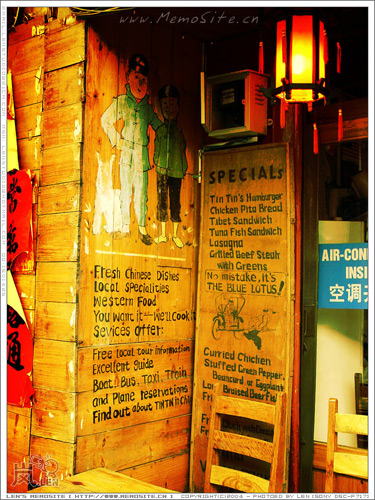 www.MemoSite.cn
SPECIALS
Tin Tin's Hamburger
Chicken Pita Bread
Tibet Sandwich
Tuna Fish Sandwich
Lasagna
Grilled Beef Steak
with Greens
No mistake, it's
THE BLUE LOTUS!
Curried Chicken
Stuffed Green Pepper,
Beancurd or Eggplant
Fresh Chinese Dishes
Local Specialities
Western Food
You want it — We'll Cook it
Sevices Offer:
Free local tour information
Excellent Guide
Boat, Bus, Taxi, Train
and Plane reservations
Find out about TINTIN in
AIR-CON
INSI
空调
通
岚
LEN'S MEMOSITE [ HTTP://WWW.MEMOSITE.CN ] COPYRIGHT(C)2004 - PHOTOED BY LEN (SONY DSC-P717)